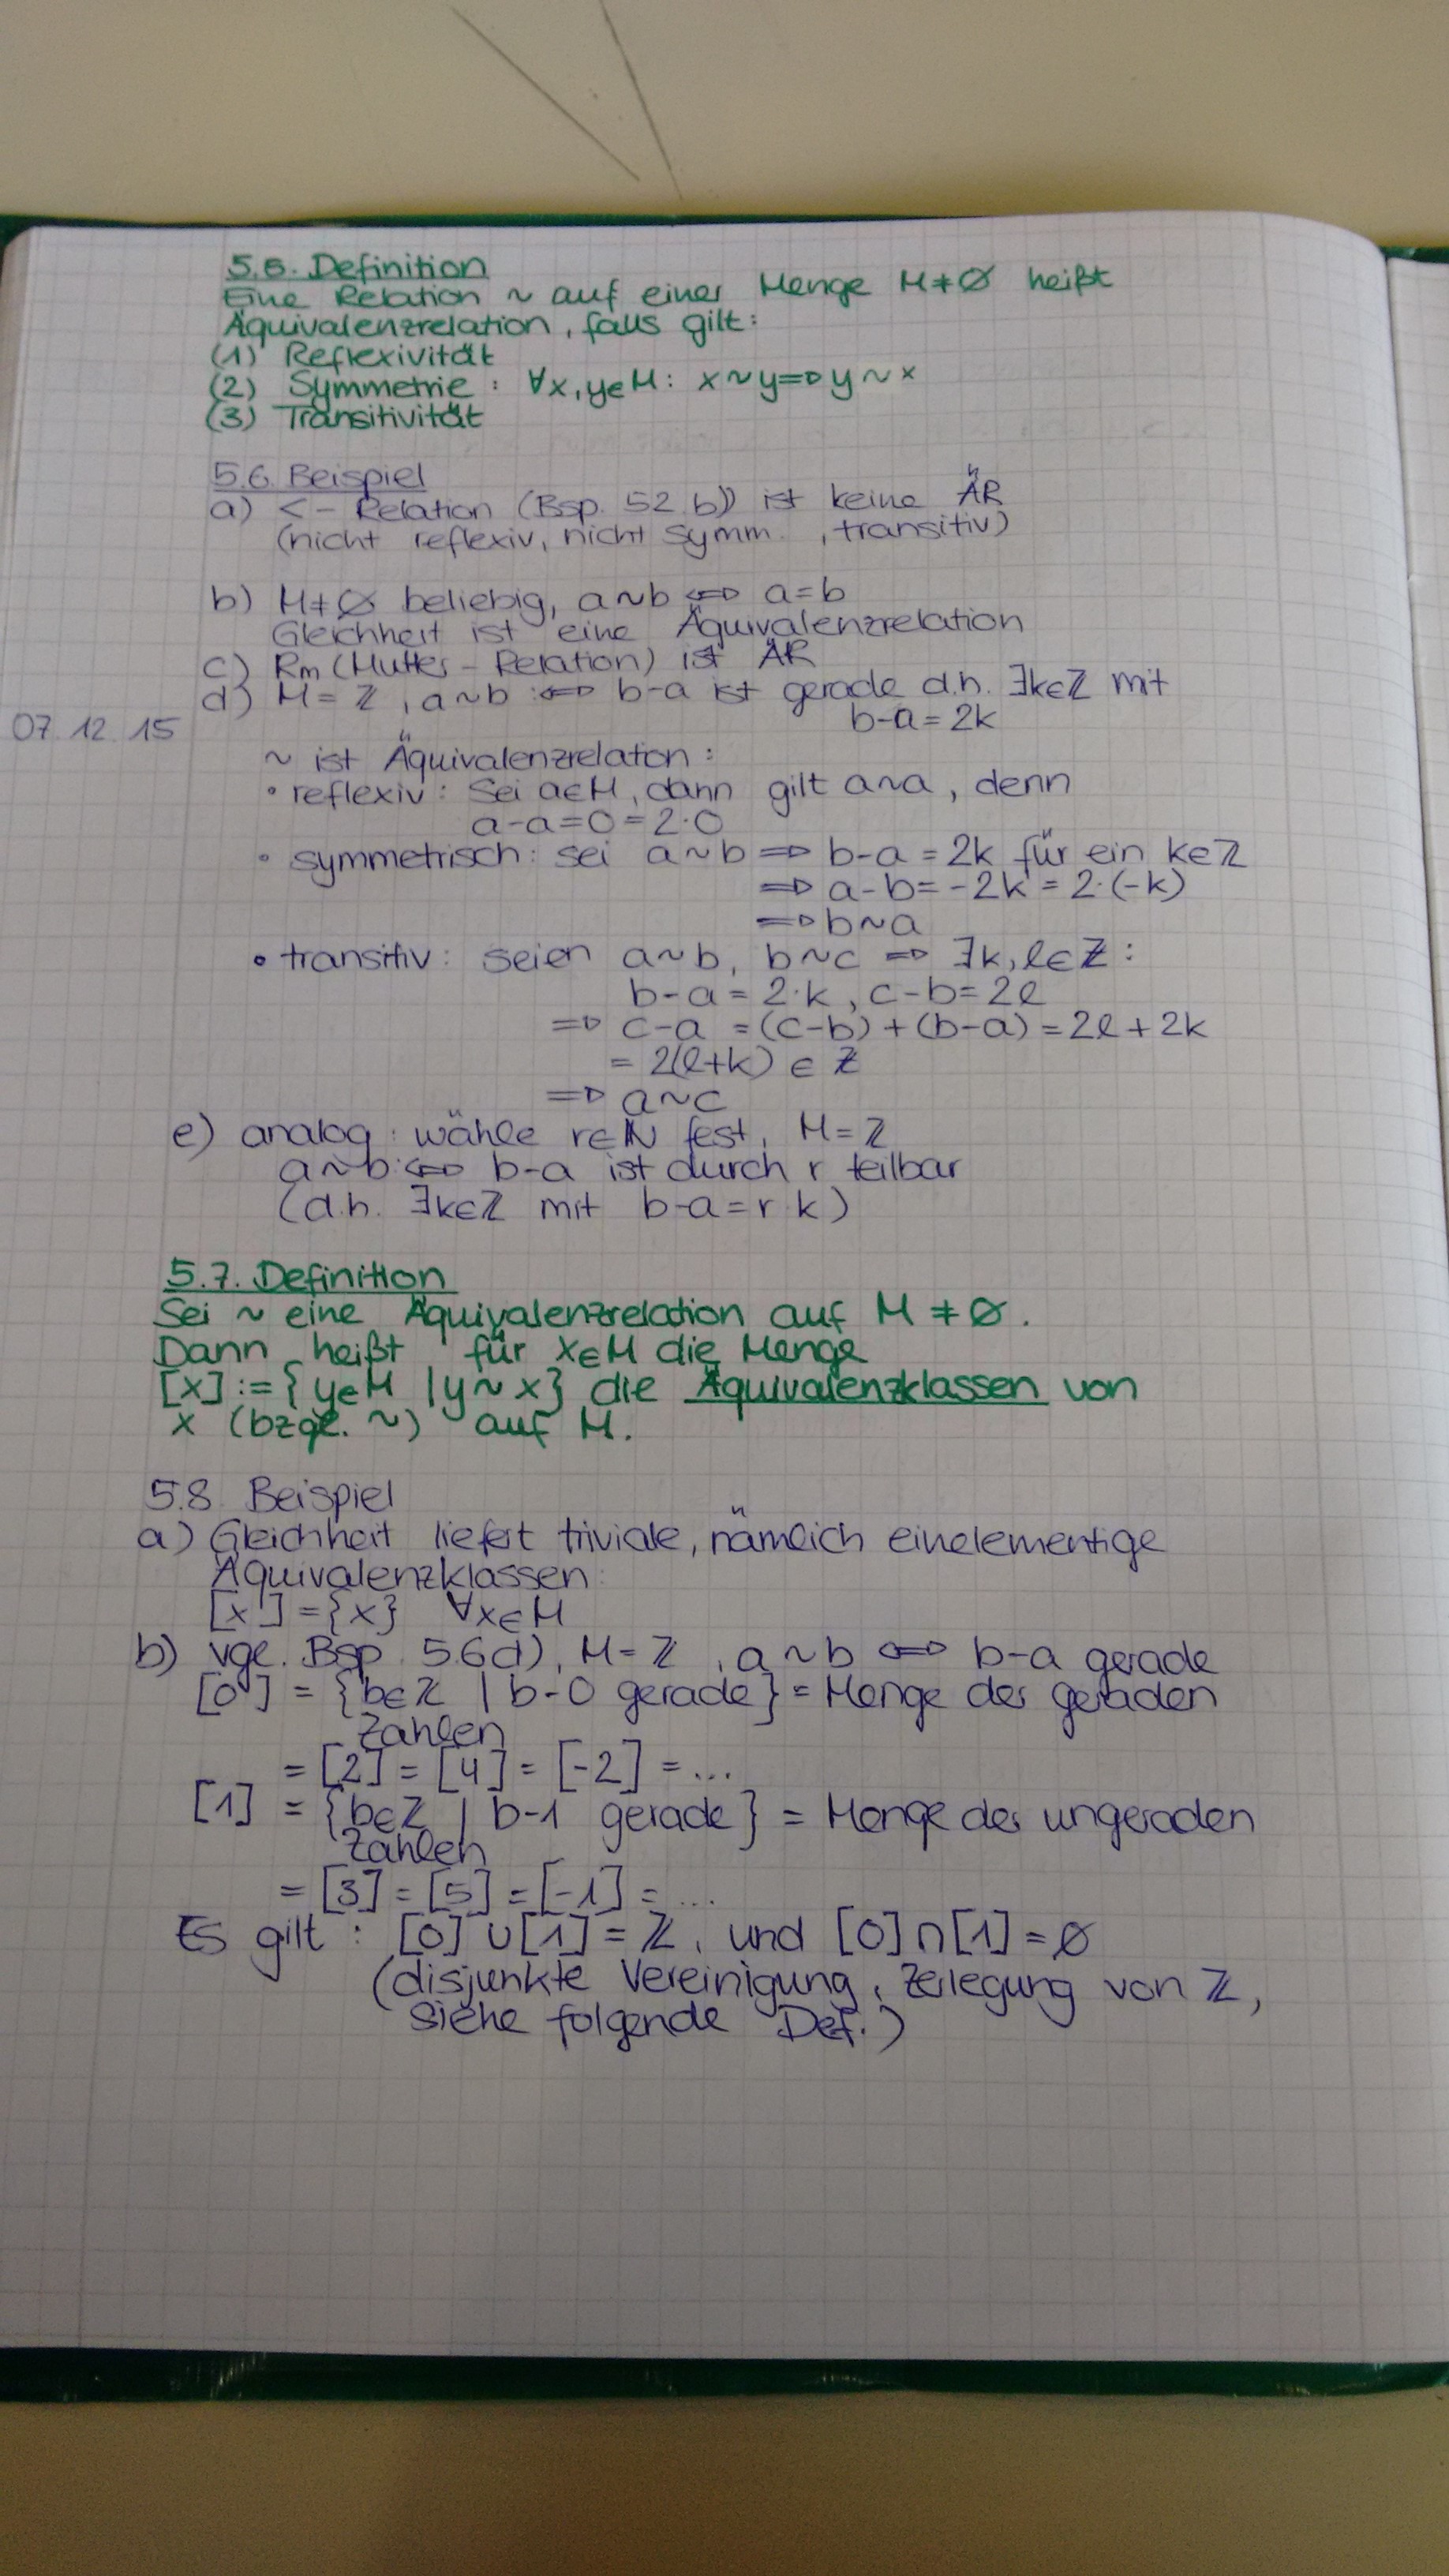 5.5. Definition
Eine Relation ~ auf einer Menge M≠∅ heißt
Äquivalenzrelation, falls gilt:
(1) Reflexivität
(2) Symmetrie: ∀x,y∈M: x~y⇒y~x
(3) Transitivität
5.6. Beispiel
a) <-Relation (Bsp. 5.2.b)) ist keine ÄR
(nicht reflexiv, nicht symm., transitiv)
b) M≠∅ beliebig, a~b ⇔ a=b
Gleichheit ist eine Äquivalenzrelation
c) Rm (Mutter-Relation) ist ÄR
d) M=ℤ, a~b :⇔ b-a ist gerade d.h. ∃k∈ℤ mit
07.12.15
b-a=2k
~ ist Äquivalenzrelation:
• reflexiv: Sei a∈M, dann gilt a~a, denn
a-a=0=2·0
• symmetrisch: sei a~b ⇒ b-a=2k für ein k∈ℤ
⇒ a-b=-2k=2·(-k)
⇒ b~a
• transitiv: seien a~b, b~c ⇒ ∃k,l∈ℤ:
b-a=2·k, c-b=2l
⇒ c-a =(c-b)+(b-a)=2l+2k
= 2(l+k) ∈ ℤ
⇒ a~c
e) analog: wähle r∈ℕ fest, M=ℤ
a~b:⇔ b-a ist durch r teilbar
(d.h. ∃k∈ℤ mit b-a=r·k)
5.7. Definition
Sei ~ eine Äquivalenzrelation auf M≠∅.
Dann heißt für x∈M die Menge
[x]:={y∈M |y~x} die Äquivalenzklassen von
x (bzgl. ~) auf M.
5.8. Beispiel
a) Gleichheit liefert triviale, nämlich einelementige
Äquivalenzklassen:
[x]={x} ∀x∈M
b) vgl. Bsp. 5.6d), M=ℤ, a~b ⇔ b-a gerade
[0] = {b∈ℤ | b-0 gerade} = Menge der geraden
Zahlen
= [2] = [4] = [-2] = ...
[1] = {b∈ℤ | b-1 gerade} = Menge der ungeraden
Zahlen
= [3] = [5] = [-1] = ...
Es gilt: [0]∪[1]=ℤ, und [0]∩[1]=∅
(disjunkte Vereinigung, Zerlegung von ℤ,
siehe folgende Def.)